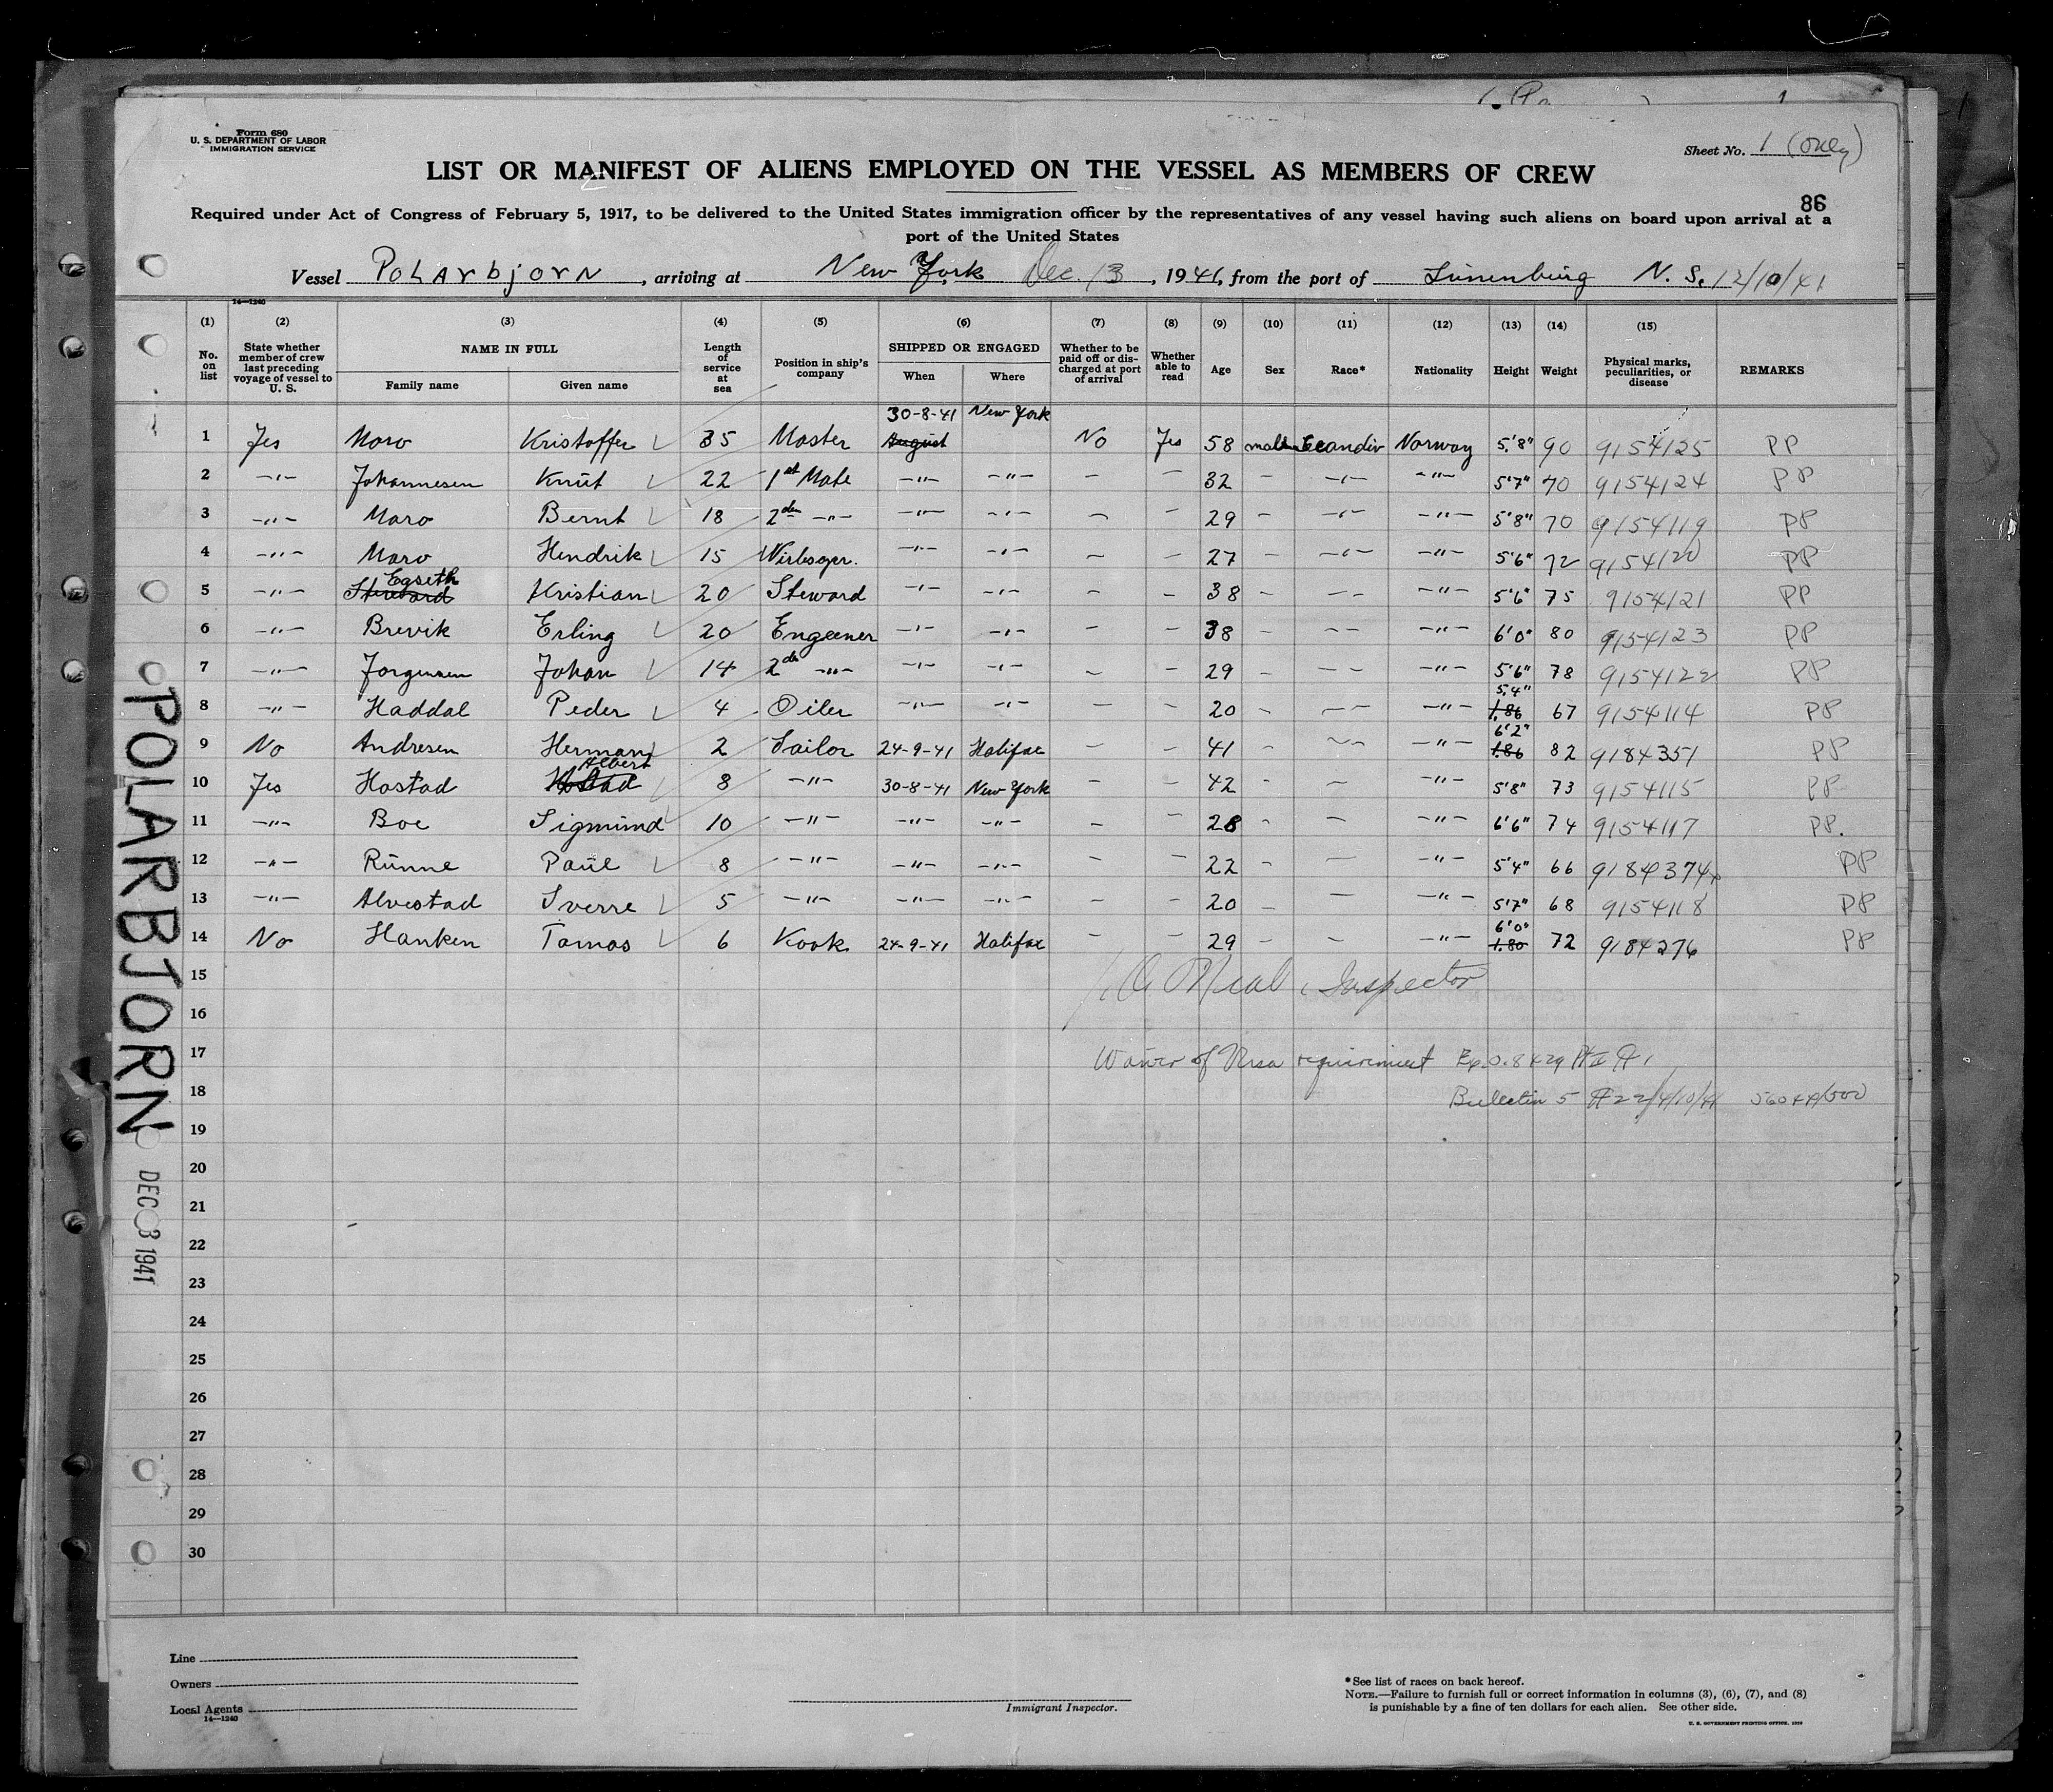 Form 680
U. S. DEPARTMENT OF LABOR
IMMIGRATION SERVICE
Sheet No. 1 (only)
LIST OR MANIFEST OF ALIENS EMPLOYED ON THE VESSEL AS MEMBERS OF CREW
86
Required under Act of Congress of February 5, 1917, to be delivered to the United States immigration officer by the representatives of any vessel having such aliens on board upon arrival at a
port of the United States
Vessel Polarbjorn, arriving at New York Dec. 13, 1941, from the port of Lünenbürg N. S. 12/10/41
14—1240
(1) (2) (3) (4) (5) (6) (7) (8) (9) (10) (11) (12) (13) (14) (15)
No. on list
State whether member of crew last preceding voyage of vessel to U. S.
NAME IN FULL
Family name Given name
Length of service at sea
Position in ship's company
SHIPPED OR ENGAGED
When Where
Whether to be paid off or discharged at port of arrival
Whether able to read
Age Sex Race* Nationality Height Weight
Physical marks, peculiarities, or disease
REMARKS
30-8-41 New York
1 Yes Maro Kristoffer 35 Master August No Yes 58 male Scandiv Norway 5'8" 90 9154125 PP
2 -"- Johannesen Knüt 22 1st Mate -"- -"- - - 32 - -"- -"- 5'7" 70 9154124 PP
3 -"- Maro Bernt 18 2den -"- -"- -"- - - 29 - -"- -"- 5'8" 70 9154119 PP
4 -"- Maro Hendrik 15 -"- -"- - - 27 - -"- -"- 5'6" 72 9154120 PP
Egseth
5 -"- Kristian 20 Steward -"- -"- - - 38 - - - -"- 5'6" 75 9154121 PP
6 -"- Brevik Erling 20 Engeener -"- -"- - - 38 - - - -"- 6'0" 80 9154123 PP
7 -"- Jorgensen Johan 14 2de -"- -"- -"- - - 29 - - - -"- 5'6" 78 9154122 PP
5'4"
8 -"- Haddal Peder 4 Oiler -"- -"- - - 20 - - - -"- 1.86 67 9154114 PP
6'2"
9 No Andresen Herman 2 Sailor 24-9-41 Halifax - - 41 - - - -"- 1.86 82 9184351 PP
Albert
10 Yes Hastad 8 -"- 30-8-41 New York - - 42 - - -"- 5'8" 73 9154115 PP
11 -"- Boe Sigmünd 10 -"- -"- -"- - - 28 - - -"- 6'6" 74 9154117 PP.
12 -"- Rünne Paül 8 -"- -"- -"- - - 22 - - -"- 5'4" 66 9184374 PP
13 -"- Alvestad Sverre 5 -"- -"- -"- - - 20 - - -"- 5'7" 68 9154118 PP
6'0"
14 No Hanken Tomas 6 Kook 24-9-41 Halifax - - 29 - - -"- 1.80 72 9184276 PP
15
Inspector
16
17 Waiver of Visa requirement Ex.O. 8429
18 Bulletin 5
19
20
21
22
23
24
25
26
27
28
29
30
POLARBJORN
DEC 13 1941
Line
Owners
Local Agents
14—1240
Immigrant Inspector.
*See list of races on back hereof.
NOTE.—Failure to furnish full or correct information in columns (3), (6), (7), and (8)
is punishable by a fine of ten dollars for each alien. See other side.
U. S. GOVERNMENT PRINTING OFFICE